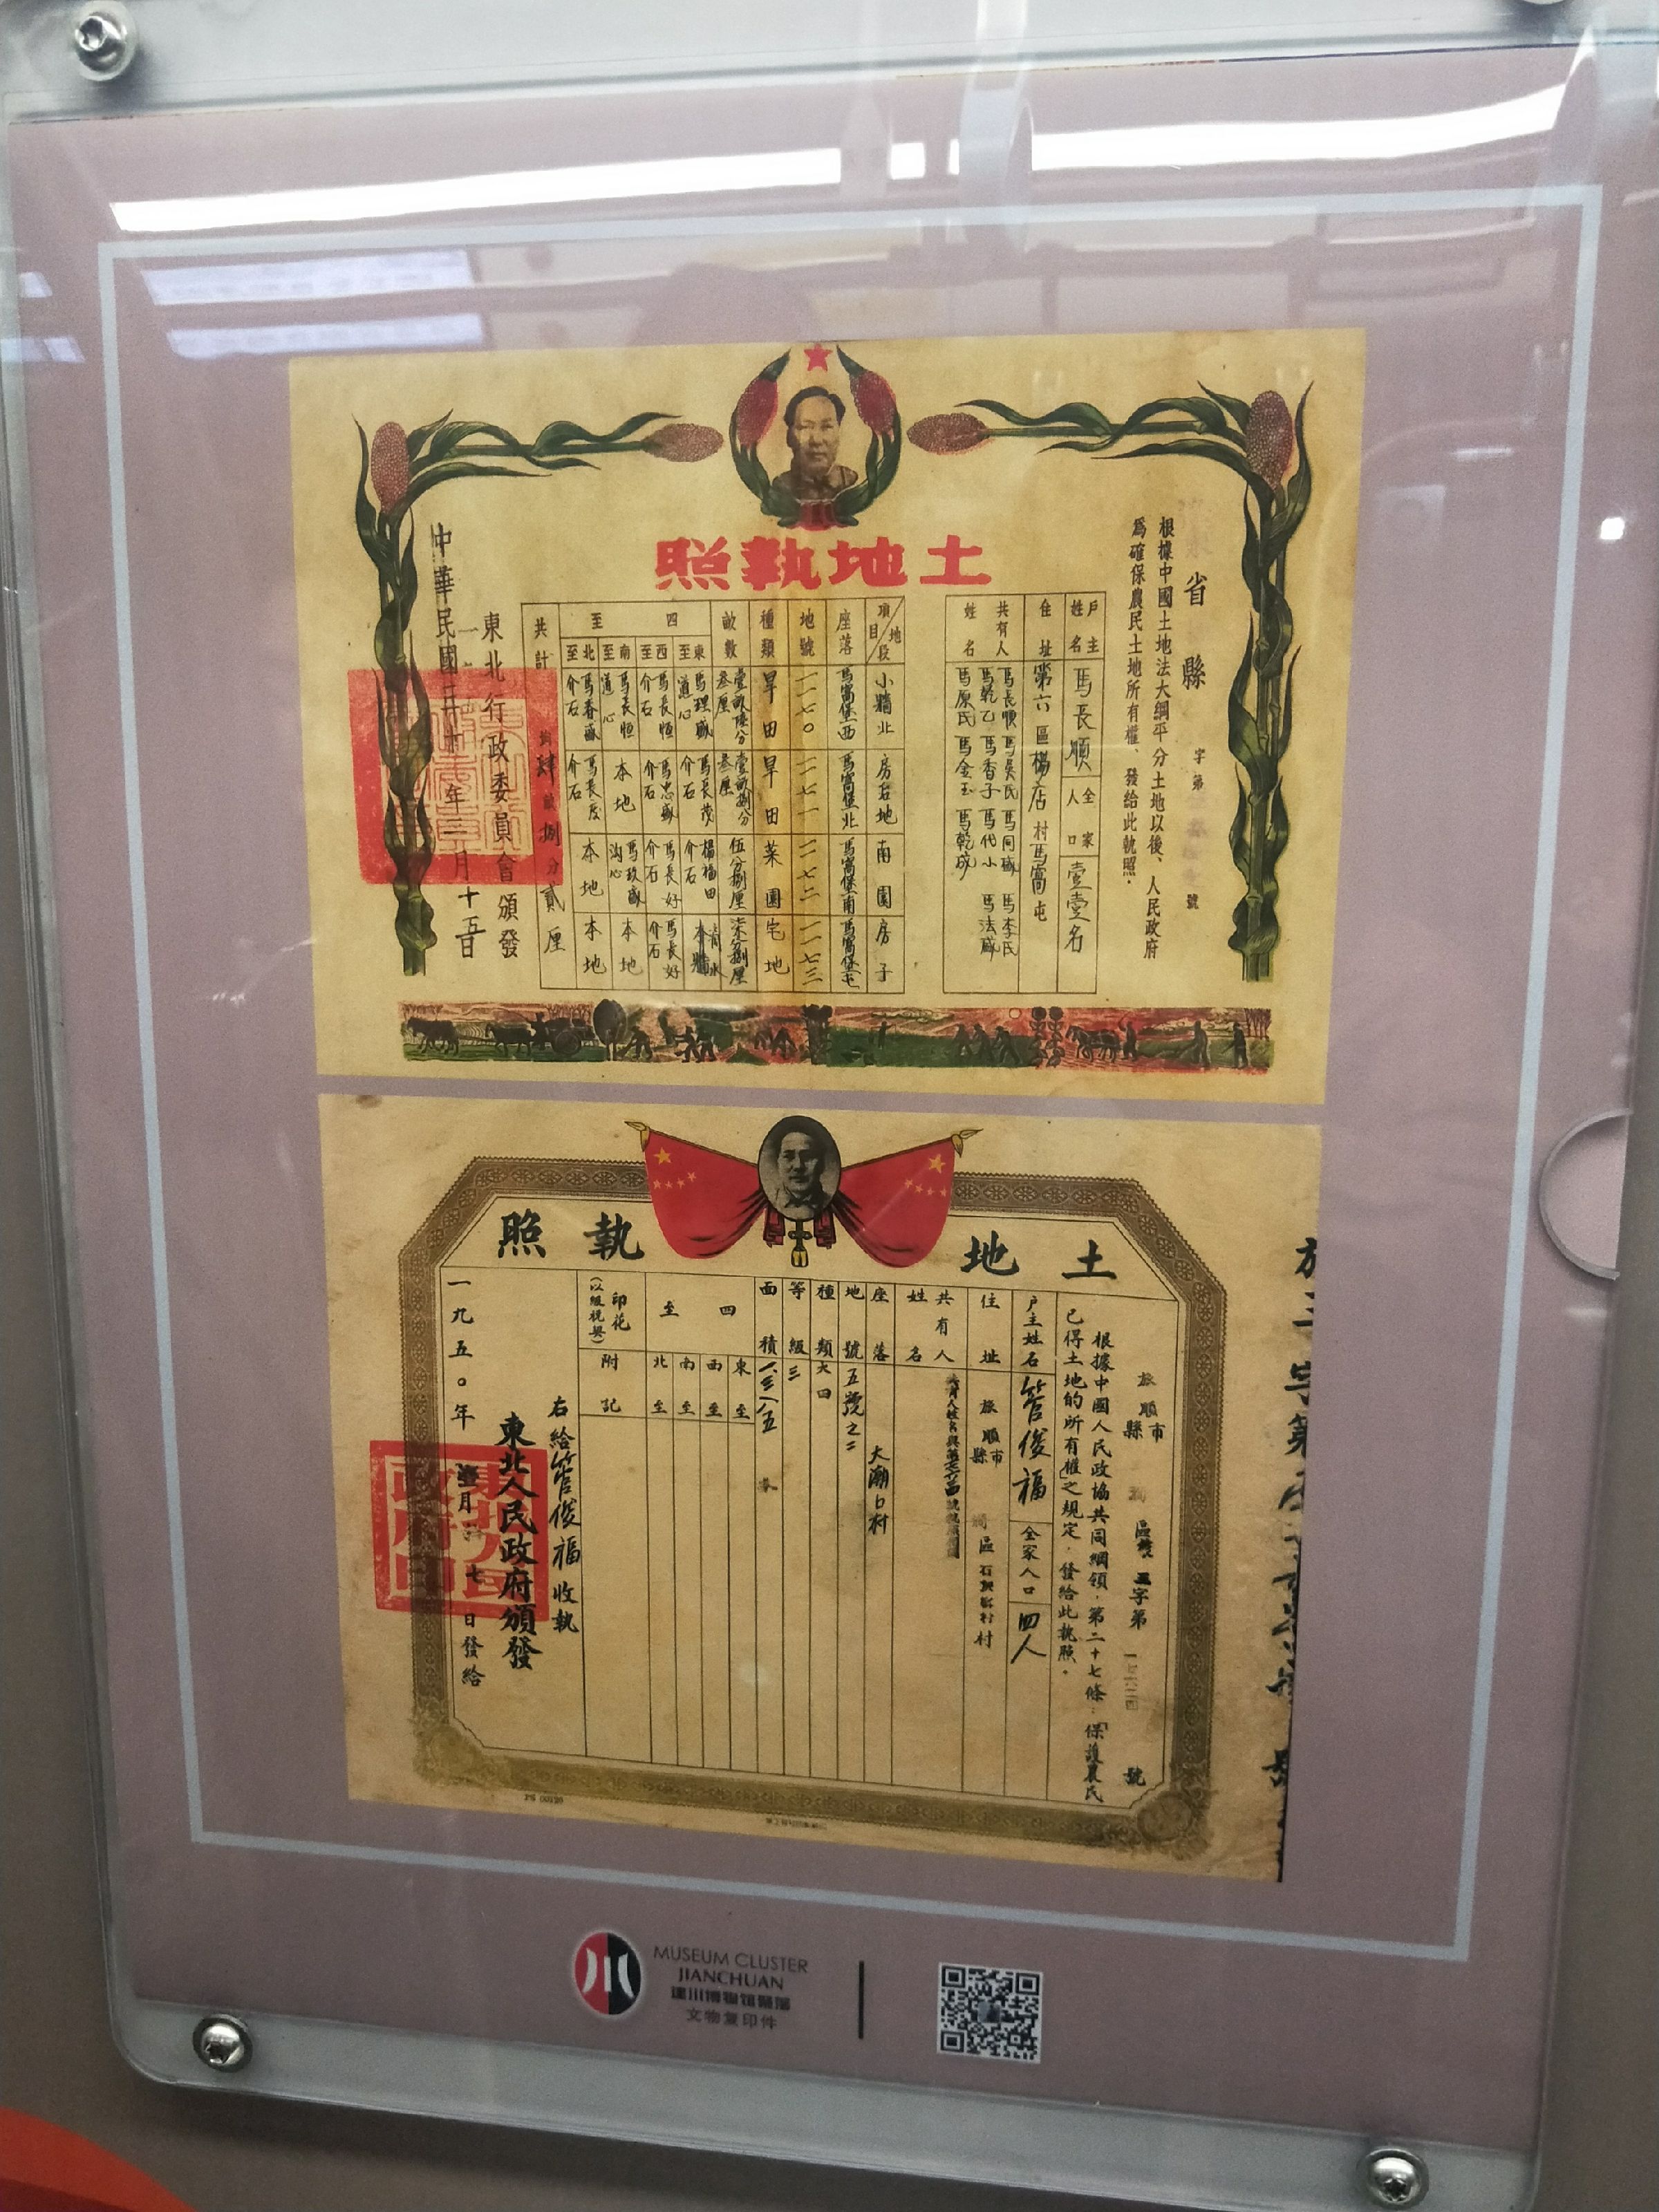 土地執照
省 縣 字第 號
根據中國土地法大綱平分土地以後、人民政府
爲確保農民土地所有權、發給此執照.
戶主姓名 馬長順 全家人口 壹壹名
住址 第六區楊店村馬窩屯
共有人姓名
馬長順 馬吳氏 馬同盛 馬李氏
馬乾乙 馬香子 馬代小 馬法盛
馬原氏 馬金玉 馬乾成
地段 項目 小牆北 房右地 南園 房子
座落 馬窩堡西 馬窩堡北 馬窩堡南 馬窩堡屯
地號 一一七〇 一一七一 一一七二 一一七三
種類 旱田 旱田 菜園 宅地
畝數 叁厘 壹畝捌分叁厘 伍分捌厘 柒分捌厘
四至
東至 馬理盛道心 馬長茂介石 楊福田介石
西至 馬長恒介石 馬忠盛介石 馬長好介石 馬長好介石
南至 馬長恒道心 本地 馬玖盛溝心 本地
北至 馬春盛介石 介石 本地 本地
共計 肆畝捌分貳厘
東北行政委員會頒發
中華民國三十 年三月十五日
土地執照
旅順市縣 區 字第 號
根據中國人民政協共同綱領,第二十七條:「保護農民
已得土地的所有權」之規定,發給此執照.
戶主姓名 管俊福 全家人口 四人
住址 旅順市縣 區 村
共有人姓名
座落 大潮口村
地號 五號之二
種類 大田
等級 三
面積
四至
東至
西至
南至
北至
印花
附記
右給管俊福收執
東北人民政府頒發
一九五〇年 月 七日發給
MUSEUM CLUSTER
JIANCHUAN
建川博物馆聚落
文物复印件